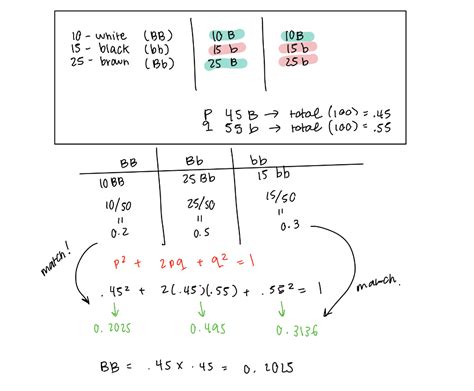 10 - white (BB) 10 B 10B
15 - black (bb) 15 b 15 b
25 - brown (Bb) 25 B 25 b
P 45 B → total (100) = .45
q 55 b → total (100) = .55
BB Bb bb
10 BB 25 Bb 15 bb
10/50 25/50 15/50
= = =
0.2 0.5 0.3
match!
match.
p² + 2pq + q² = 1
.45² + 2(.45)(.55) + .55² = 1
0.2025 0.495 0.3136
BB = .45 x .45 = 0.2025